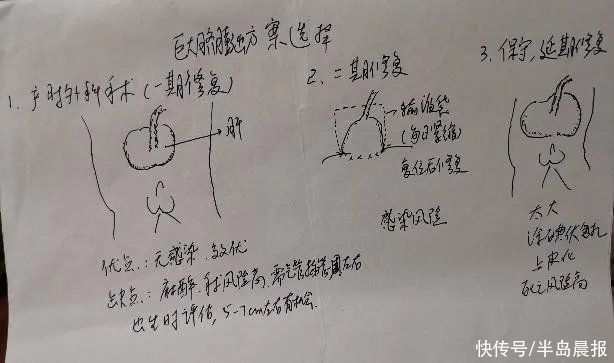 巨大脐膨出方案选择
1. 产时外科手术(一期修复)
肝
优点:无感染、效优
缺点:麻醉、手术风险高,需气管插管周左右
出生时评估,5-7cm左右有机会.
2. 二期修复
输液袋
(每日紧缩)
复位后修复
感染风险
3. 保守,延期修复
太大
涂碘伏包扎
上皮化
死亡风险高
快传号/半岛晨报